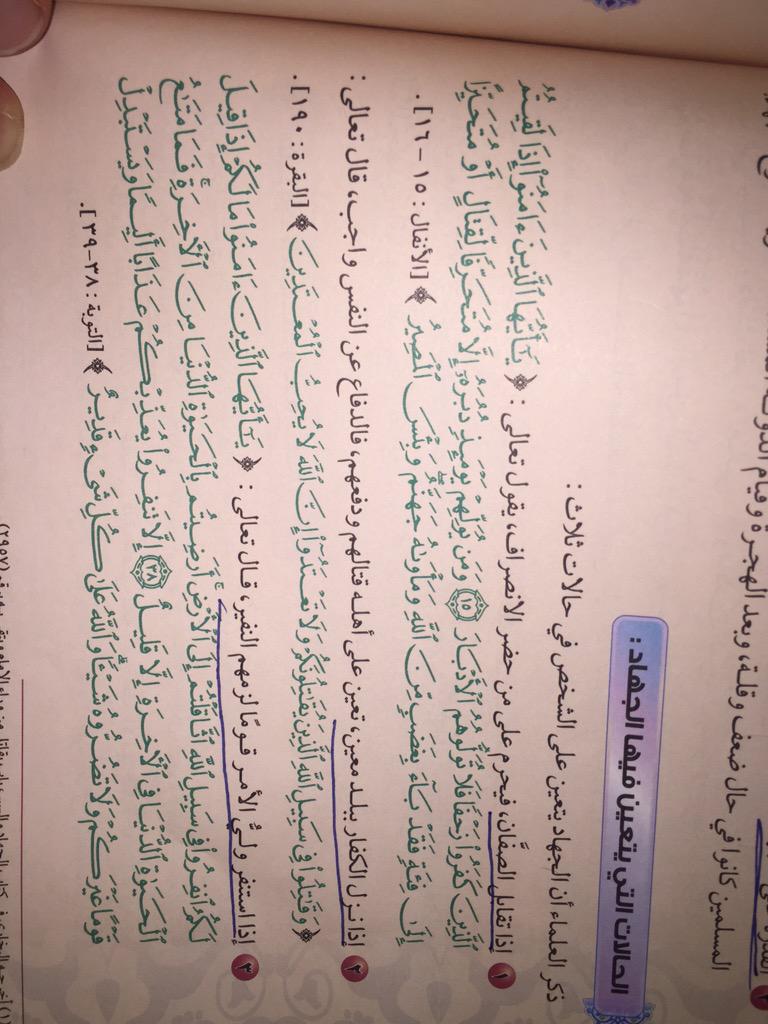 المسلمين كانوا في حال ضعف وقلة، وبعد الهجرة وقيام الدولة
الحالات التي يتعين فيها الجهاد:
ذكر العلماء أن الجهاد يتعين على الشخص في حالات ثلاث:
١ إذا تقابل الصفَّان، فيحرم على من حضر الانصراف، يقول تعالى: ﴿ يَـٰٓأَيُّهَا ٱلَّذِينَ ءَامَنُوٓا۟ إِذَا لَقِيتُمُ
ٱلَّذِينَ كَفَرُوا۟ زَحْفًا فَلَا تُوَلُّوهُمُ ٱلْأَدْبَارَ ١٥ وَمَن يُوَلِّهِمْ يَوْمَئِذٍ دُبُرَهُۥٓ إِلَّا مُتَحَرِّفًا لِّقِتَالٍ أَوْ مُتَحَيِّزًا
إِلَىٰ فِئَةٍ فَقَدْ بَآءَ بِغَضَبٍ مِّنَ ٱللَّهِ وَمَأْوَىٰهُ جَهَنَّمُ وَبِئْسَ ٱلْمَصِيرُ ﴾ [الأنفال: ١٥ - ١٦].
٢ إذا نزل الكفار ببلد معين، تعين على أهله قتالهم ودفعهم، فالدفاع عن النفس واجب، قال تعالى:
﴿ وَقَـٰتِلُوا۟ فِى سَبِيلِ ٱللَّهِ ٱلَّذِينَ يُقَـٰتِلُونَكُمْ وَلَا تَعْتَدُوٓا۟ إِنَّ ٱللَّهَ لَا يُحِبُّ ٱلْمُعْتَدِينَ ﴾ [البقرة: ١٩٠].
٣ إذا استنفر وليُّ الأمر قومًا لزمهم النفير، قال تعالى: ﴿ يَـٰٓأَيُّهَا ٱلَّذِينَ ءَامَنُوا۟ مَا لَكُمْ إِذَا قِيلَ
لَكُمُ ٱنفِرُوا۟ فِى سَبِيلِ ٱللَّهِ ٱثَّاقَلْتُمْ إِلَى ٱلْأَرْضِ أَرَضِيتُم بِٱلْحَيَوٰةِ ٱلدُّنْيَا مِنَ ٱلْـَٔاخِرَةِ فَمَا مَتَـٰعُ
ٱلْحَيَوٰةِ ٱلدُّنْيَا فِى ٱلْـَٔاخِرَةِ إِلَّا قَلِيلٌ ٣٨ إِلَّا تَنفِرُوا۟ يُعَذِّبْكُمْ عَذَابًا أَلِيمًا وَيَسْتَبْدِلْ
قَوْمًا غَيْرَكُمْ وَلَا تَضُرُّوهُ شَيْـًٔا وَٱللَّهُ عَلَىٰ كُلِّ شَىْءٍ قَدِيرٌ ﴾ [التوبة: ٣٨-٣٩].